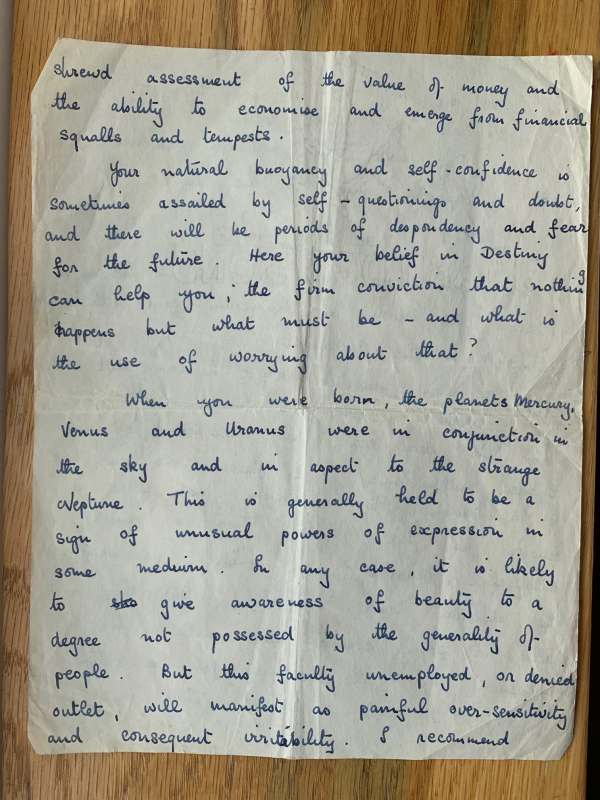 shrewd assessment of the value of money and
the ability to economise and emerge from financial
squalls and tempests.
Your natural buoyancy and self-confidence is
sometimes assailed by self-questionings and doubt,
and there will be periods of despondency and fear
for the future. Here your belief in Destiny
can help you; the firm conviction that nothing
happens but what must be - and what is
the use of worrying about that?
When you were born, the planets Mercury,
Venus and Uranus were in conjunction in
the sky and in aspect to the strange
Neptune. This is generally held to be a
sign of unusual powers of expression in
some medium. In any case, it is likely
to give awareness of beauty to a
degree not possessed by the generality of
people. But this faculty unemployed, or denied
outlet, will manifest as painful over-sensitivity
and consequent irritability. I recommend